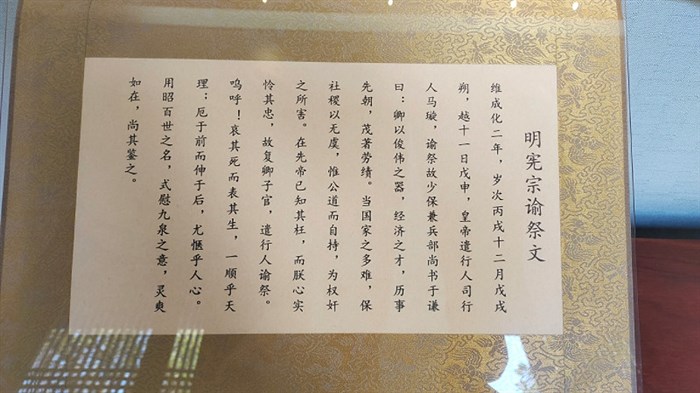 明宪宗谕祭文
维成化二年，岁次丙戌十二月戊戌
朔，越十一日戊申，皇帝遣行人司行
人马璇，谕祭故少保兼兵部尚书于谦
曰：卿以俊伟之器，经济之才，历事
先朝，茂著劳绩。当国家之多难，保
社稷以无虞，惟公道而自持，为权奸
之所害。在先帝已知其枉，而朕心实
怜其忠，故复卿子官，遣行人谕祭。
呜呼！哀其死而表其生，一顺乎天
理；厄于前而伸于后，尤惬乎人心。
用昭百世之名，式慰九泉之意，灵爽
如在，尚其鉴之。